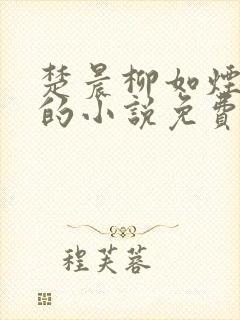 楚晨柳如煙
的小說免費
程芙蓉